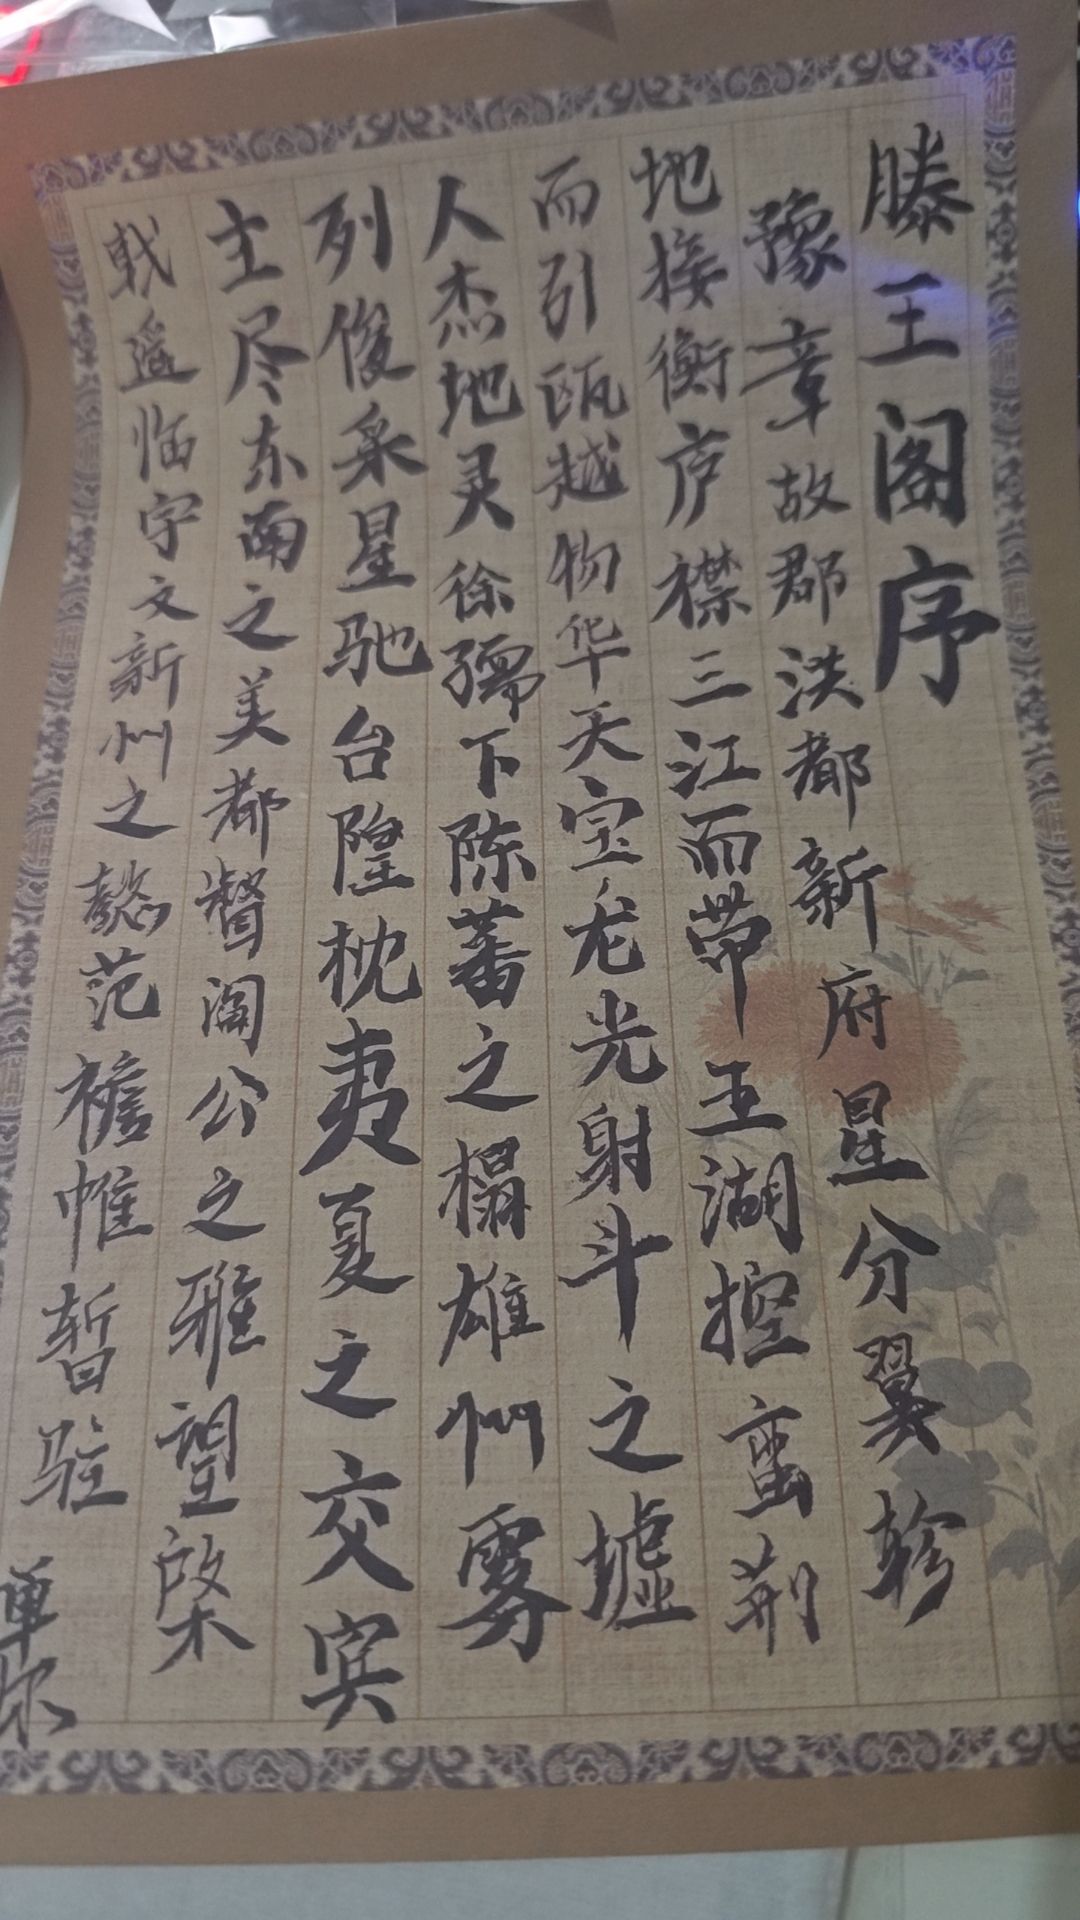 滕王阁序
豫章故郡洪都新府星分翼轸
地接衡庐襟三江而带五湖控蛮荆
而引瓯越物华天宝龙光射斗之墟
人杰地灵徐孺下陈蕃之榻雄州雾
列俊采星驰台隍枕夷夏之交宾
主尽东南之美都督阎公之雅望棨
戟遥临宇文新州之懿范襜帷暂驻